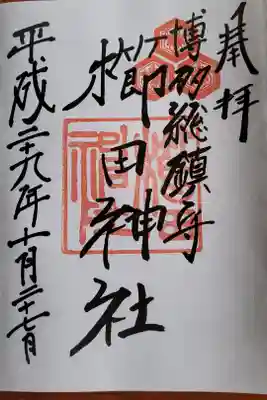 奉拝
博多総鎮守
櫛田神社
平成二十九年十月二十七日